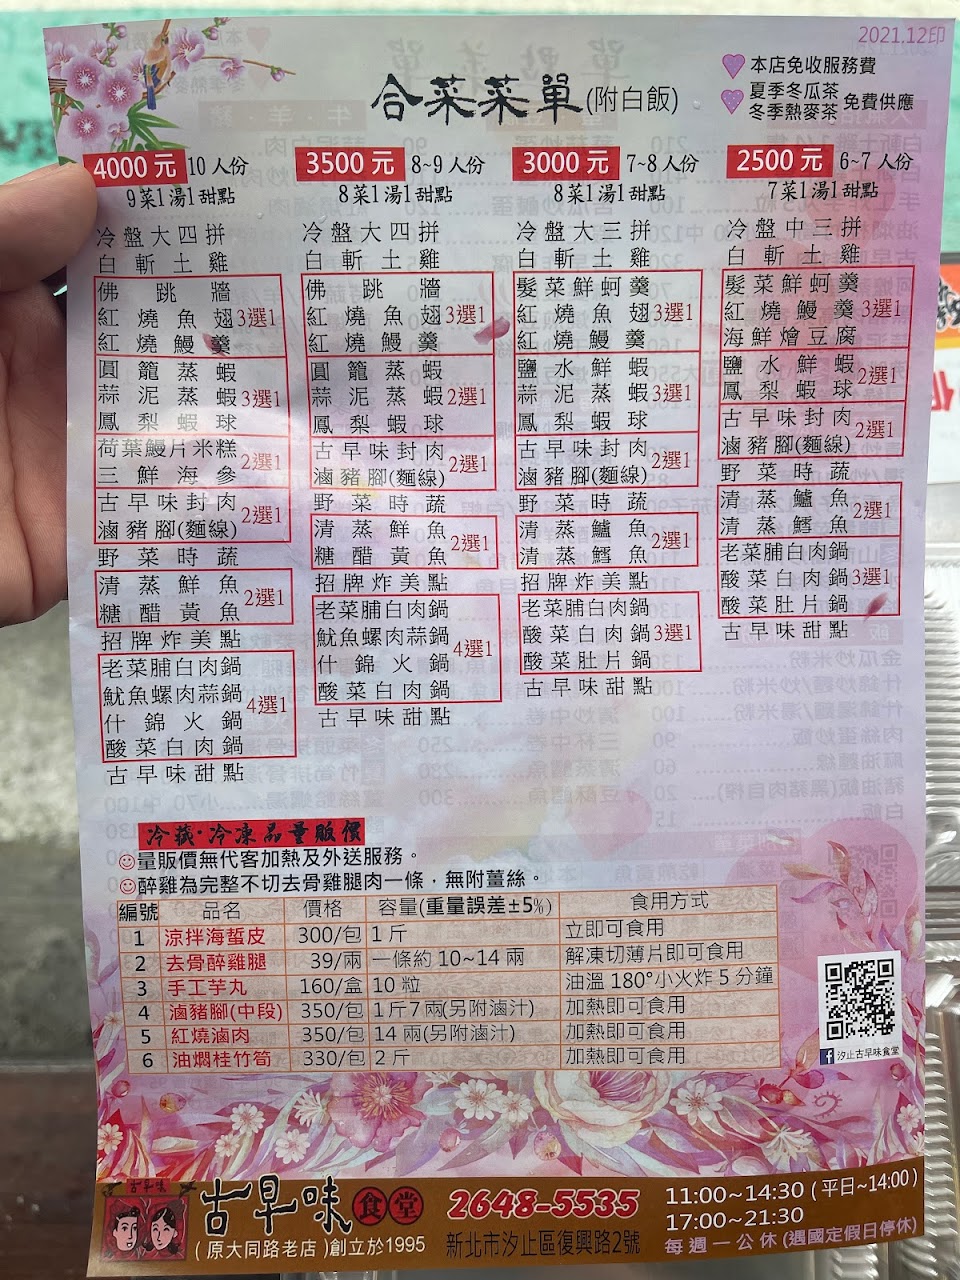 2021.12印
合菜菜單(附白飯)
本店免收服務費
夏季冬瓜茶
冬季熱麥茶 免費供應
4000 元 10 人份
9菜1湯1甜點
冷盤大四拼
白斬土雞
佛跳牆
紅燒魚翅 3選1
紅燒鰻羹
圓籠蒸蝦
蒜泥蒸蝦 3選1
鳳梨蝦球
荷葉鰻片米糕
三鮮海參 2選1
古早味封肉
滷豬腳(麵線) 2選1
野菜時蔬
清蒸鮮魚
糖醋黃魚 2選1
招牌炸美點
老菜脯白肉鍋
魷魚螺肉蒜鍋 4選1
什錦火鍋
酸菜白肉鍋
古早味甜點
3500 元 8~9 人份
8菜1湯1甜點
冷盤大四拼
白斬土雞
佛跳牆
紅燒魚翅 3選1
紅燒鰻羹
圓籠蒸蝦
蒜泥蒸蝦 2選1
鳳梨蝦球
古早味封肉
滷豬腳(麵線) 2選1
野菜時蔬
清蒸鮮魚
糖醋黃魚 2選1
招牌炸美點
老菜脯白肉鍋
魷魚螺肉蒜鍋 4選1
什錦火鍋
酸菜白肉鍋
古早味甜點
3000 元 7~8 人份
8菜1湯1甜點
冷盤大三拼
白斬土雞
髮菜鮮蚵羹
紅燒魚翅 3選1
紅燒鰻羹
鹽水鮮蝦
蒜泥蒸蝦 3選1
鳳梨蝦球
古早味封肉
滷豬腳(麵線) 2選1
野菜時蔬
清蒸鱸魚
清蒸鱈魚 2選1
招牌炸美點
老菜脯白肉鍋
酸菜白肉鍋 3選1
酸菜肚片鍋
古早味甜點
2500 元 6~7 人份
7菜1湯1甜點
冷盤中三拼
白斬土雞
髮菜鮮蚵羹
紅燒鰻羹 3選1
海鮮燴豆腐
鹽水鮮蝦
鳳梨蝦球 2選1
古早味封肉
滷豬腳(麵線) 2選1
野菜時蔬
清蒸鱸魚
清蒸鱈魚 2選1
老菜脯白肉鍋
酸菜白肉鍋 3選1
酸菜肚片鍋
古早味甜點
冷藏·冷凍品量販價
量販價無代客加熱及外送服務。
醉雞為完整不切去骨雞腿肉一條，無附薑絲。
編號 品名 價格 容量(重量誤差±5%) 食用方式
1 涼拌海蜇皮 300/包 1 斤 立即可食用
2 去骨醉雞腿 39/兩 一條約 10~14 兩 解凍切薄片即可食用
3 手工芋丸 160/盒 10 粒 油溫 180°小火炸 5 分鐘
4 滷豬腳(中段) 350/包 1斤7兩(另附滷汁) 加熱即可食用
5 紅燒滷肉 350/包 14 兩(另附滷汁) 加熱即可食用
6 油燜桂竹筍 330/包 2 斤 加熱即可食用
汐止古早味食堂
古早味
古早味食堂
(原大同路老店)創立於1995
2648-5535
新北市汐止區復興路2號
11:00~14:30 (平日~14:00)
17:00~21:30
每週一公休(遇國定假日停休)